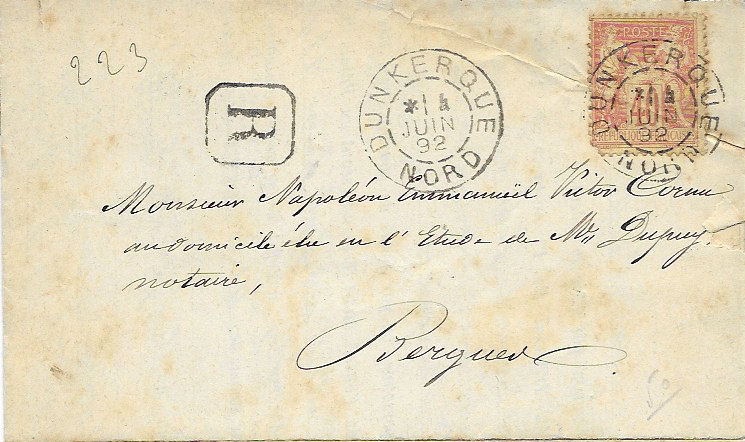 223
R
DUNKERQUE
* 14
JUIN
92
NORD
POSTE
DUNKERQUE
* 14
JUIN
92
NORD
Monsieur Napoléon Emmanuël Victor Cornu
au domicile élu en l'Etude de Me Dupuy,
notaire,
Bergues